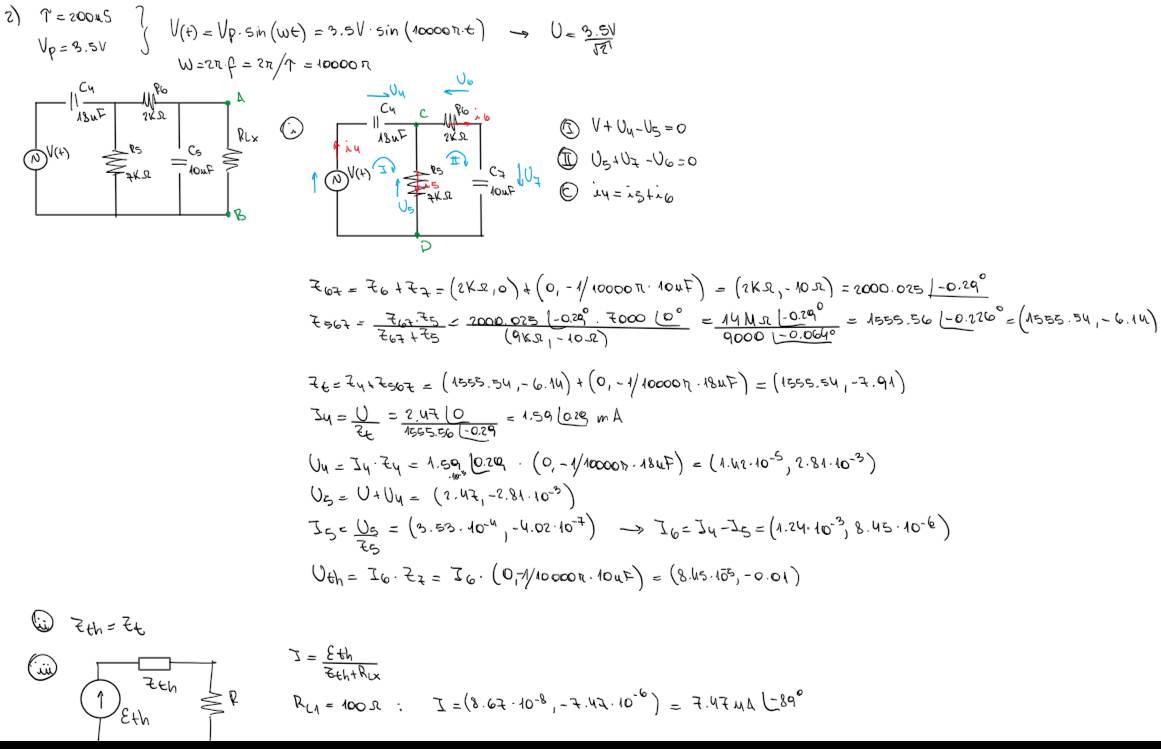 2) T = 200uS
Vp = 3.5V
V(t) = Vp · sin(wt) = 3.5V · sin(10000π·t) → U = 3.5V/√2
W = 2π·f = 2π/T = 10000π
C4
18uF
R6
2KΩ
A
V(t)
R5
7KΩ
C5
10uF
RLx
B
i
U4
U6
C4
18uF
C
R6
2KΩ
i6
i4
V(t)
I
R5
i5
7KΩ
U5
II
C7
10uF
U7
D
I V + U4 - U5 = 0
II U5 + U7 - U6 = 0
C i4 = i5 + i6
Z67 = Z6 + Z7 = (2KΩ, 0) + (0, -1/10000π · 10uF) = (2KΩ, -10Ω) = 2000.025 ∠-0.29°
Z567 = Z67·Z5 / Z67+Z5 = 2000.025 ∠-0.29° · 7000 ∠0° / (9KΩ, -10Ω) = 14MΩ ∠-0.29° / 9000 ∠-0.064° = 1555.56 ∠-0.226° = (1555.54, -6.14)
Zt = Z4 + Z567 = (1555.54, -6.14) + (0, -1/10000π · 18uF) = (1555.54, -7.91)
I4 = U/Zt = 2.47 ∠0 / 1555.56 ∠-0.29 = 1.59 ∠0.29 mA
U4 = I4 · Z4 = 1.59·10⁻³ ∠0.29 · (0, -1/10000π · 18uF) = (1.42·10⁻⁵, 2.81·10⁻³)
U5 = U + U4 = (2.47, -2.81·10⁻³)
I5 = U5/Z5 = (3.53·10⁻⁴, -4.02·10⁻⁷) → I6 = I4 - I5 = (1.24·10⁻³, 8.45·10⁻⁶)
Uth = I6 · Z7 = I6 · (0, -1/10000π · 10uF) = (8.45·10⁻⁵, -0.01)
ii Zth = Zt
iii
Zth
R
Eth
I = Eth / Zth + RLx
RL1 = 100Ω : I = (8.67·10⁻⁸, -7.47·10⁻⁶) = 7.47uA ∠-89°